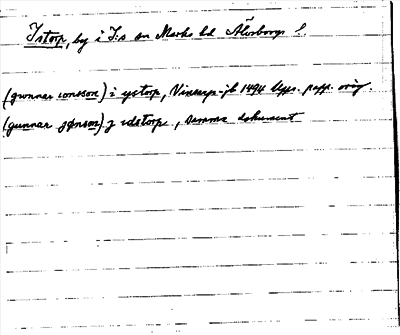 Istorp, by i I:s sn Marks hd Älvsborgs l.
(gwnnar ionsson) i ystorp, Vinarp-jb 1494 Upps. papp. orig.
(gunnar jønson) j idstorpe, samma dokument